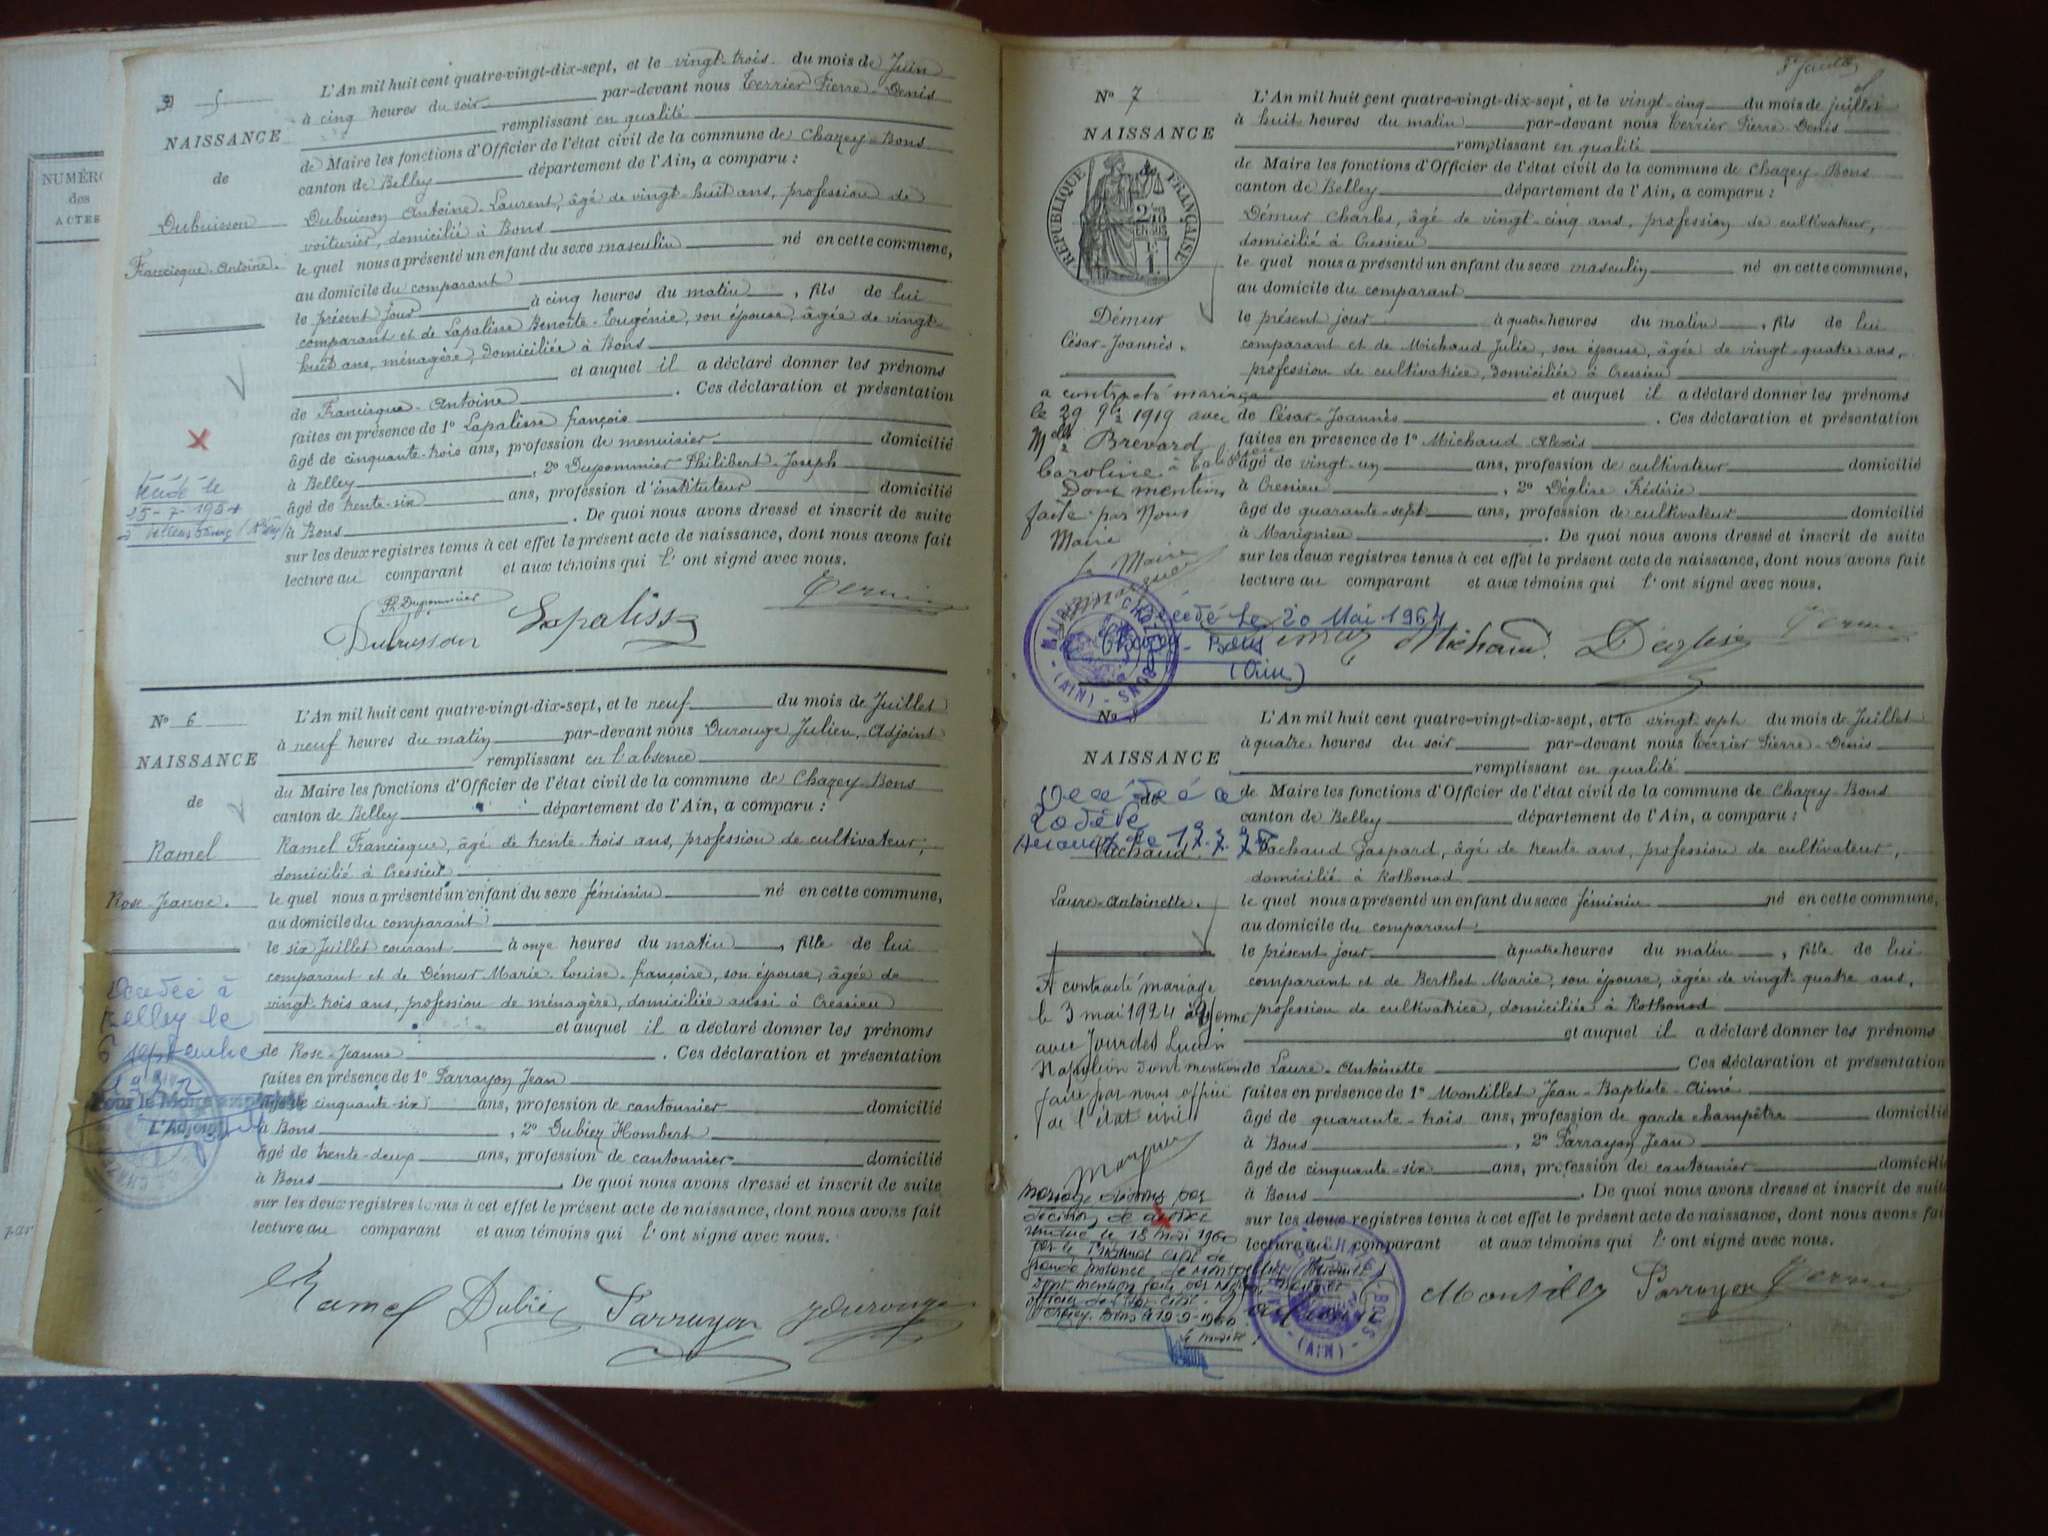 NUMÉRO
des
ACTES
par
5
NAISSANCE
de
Dubuisson
Francisque-Antoine.
25-7-1954
L'An mil huit cent quatre-vingt-dix-sept, et le vingt-trois du mois de Juin
à cinq heures du soir par-devant nous Terrier Pierre-Denis
remplissant en qualité
de Maire les fonctions d'Officier de l'état civil de la commune de Chazey-Bons
canton de Belley département de l'Ain, a comparu :
Dubuisson Antoine-Laurent, âgé de vingt-huit ans, profession de
voiturier, domicilié à Bons
le quel nous a présenté un enfant du sexe masculin né en cette commune,
au domicile du comparant
le présent jour à cinq heures du matin, fils de lui
comparant et de Lapalisse Benoîte-Eugénie, son épouse, âgée de vingt-
huit ans, ménagère, domiciliée à Bons
et auquel il a déclaré donner les prénoms
de Francisque-Antoine. Ces déclaration et présentation
faites en présence de 1º Lapalisse françois
âgé de cinquante-trois ans, profession de menuisier domicilié
à Belley, 2º Dupommier Philibert-Joseph
âgé de trente-six ans, profession d'instituteur domicilié
à Bons. De quoi nous avons dressé et inscrit de suite
sur les deux registres tenus à cet effet le présent acte de naissance, dont nous avons fait
lecture au comparant et aux témoins qui l'ont signé avec nous.
Ph. Dupommier
Dubuisson Lapalisse
Nº 6
NAISSANCE
de
Ramel
Rose-Jeanne.
Décédée à
Belley le
6 septembre
L'Adjoint
L'An mil huit cent quatre-vingt-dix-sept, et le neuf du mois de Juillet
à neuf heures du matin par-devant nous Durouge Julien, Adjoint
remplissant en l'absence
du Maire les fonctions d'Officier de l'état civil de la commune de Chazey-Bons
canton de Belley département de l'Ain, a comparu :
Ramel Francisque, âgé de trente-trois ans, profession de cultivateur,
domicilié à Cressieu
le quel nous a présenté un enfant du sexe féminin né en cette commune,
au domicile du comparant
le six Juillet courant à onze heures du matin, fille de lui
comparant et de Démur Marie-Louise-françoise, son épouse, âgée de
vingt-trois ans, profession de ménagère, domiciliée aussi à Cressieu
et auquel il a déclaré donner les prénoms
de Rose-Jeanne. Ces déclaration et présentation
faites en présence de 1º Parrayon Jean
âgé de cinquante-six ans, profession de cantonnier domicilié
à Bons, 2º Dubiez Hombert
âgé de trente-deux ans, profession de cantonnier domicilié
à Bons. De quoi nous avons dressé et inscrit de suite
sur les deux registres tenus à cet effet le présent acte de naissance, dont nous avons fait
lecture au comparant et aux témoins qui l'ont signé avec nous.
Ramel Dubiez Parrayon JDurouge
Nº 7
NAISSANCE
RÉPUBLIQUE FRANÇAISE
Démur
César-Joannès.
a contracté mariage
le 29 9bre 1919 avec
Melle Brevard
Caroline à
Dont mention
faite par Nous
Maire
Le Maire
MAIRIE DE CHAZEY-BONS - (AIN)
L'An mil huit cent quatre-vingt-dix-sept, et le vingt-cinq du mois de juillet
à huit heures du matin par-devant nous Terrier Pierre-Denis
remplissant en qualité
de Maire les fonctions d'Officier de l'état civil de la commune de Chazey-Bons
canton de Belley département de l'Ain, a comparu :
Démur Charles, âgé de vingt-cinq ans, profession de cultivateur,
domicilié à Cressieu
le quel nous a présenté un enfant du sexe masculin né en cette commune,
au domicile du comparant
le présent jour à quatre heures du matin, fils de lui
comparant et de Michaud Julie, son épouse, âgée de vingt-quatre ans,
profession de cultivatrice, domiciliée à Cressieu
et auquel il a déclaré donner les prénoms
de César-Joannès. Ces déclaration et présentation
faites en présence de 1º Michaud Alexis
âgé de vingt-un ans, profession de cultivateur domicilié
à Cressieu, 2º Déglise Frédéric
âgé de quarante-sept ans, profession de cultivateur domicilié
à Marignieu. De quoi nous avons dressé et inscrit de suite
sur les deux registres tenus à cet effet le présent acte de naissance, dont nous avons fait
lecture au comparant et aux témoins qui l'ont signé avec nous.
Décédé le 20 Mai 1964
Chazey-Bons
(Ain)
Michaud Déglise
Nº 8
NAISSANCE
de
Michaud
Laure-Antoinette.
Décédée à
Lodève
A contracté mariage
le 3 mai 1924 à Yenne
avec Jourdes Lucien
Napoléon dont mention
faite par nous officier
de l'état civil
Mariage dissous par
décision de divorce
rendue le 18 mai 1960
par le Tribunal
grande instance de Montpellier
dont mention faite par Nous
officier de l'état civil
Chazey-Bons le 19-9-1960
Le maire
L'An mil huit cent quatre-vingt-dix-sept, et le vingt-sept du mois de Juillet
à quatre heures du soir par-devant nous Terrier Pierre-Denis
remplissant en qualité
de Maire les fonctions d'Officier de l'état civil de la commune de Chazey-Bons
canton de Belley département de l'Ain, a comparu :
Michaud Gaspard, âgé de trente ans, profession de cultivateur,
domicilié à Rothonod
le quel nous a présenté un enfant du sexe féminin né en cette commune,
au domicile du comparant
le présent jour à quatre heures du matin, fille de lui
comparant et de Berthet Marie, son épouse, âgée de vingt-quatre ans,
profession de cultivatrice, domiciliée à Rothonod
et auquel il a déclaré donner les prénoms
de Laure-Antoinette Ces déclaration et présentation
faites en présence de 1º Montillet Jean-Baptiste-Aimé
âgé de quarante-trois ans, profession de garde champêtre domicilié
à Bons, 2º Parrayon Jean
âgé de cinquante-six ans, profession de cantonnier domicilié
à Bons. De quoi nous avons dressé et inscrit de suite
sur les deux registres tenus à cet effet le présent acte de naissance, dont nous avons fait
lecture au comparant et aux témoins qui l'ont signé avec nous.
Parrayon